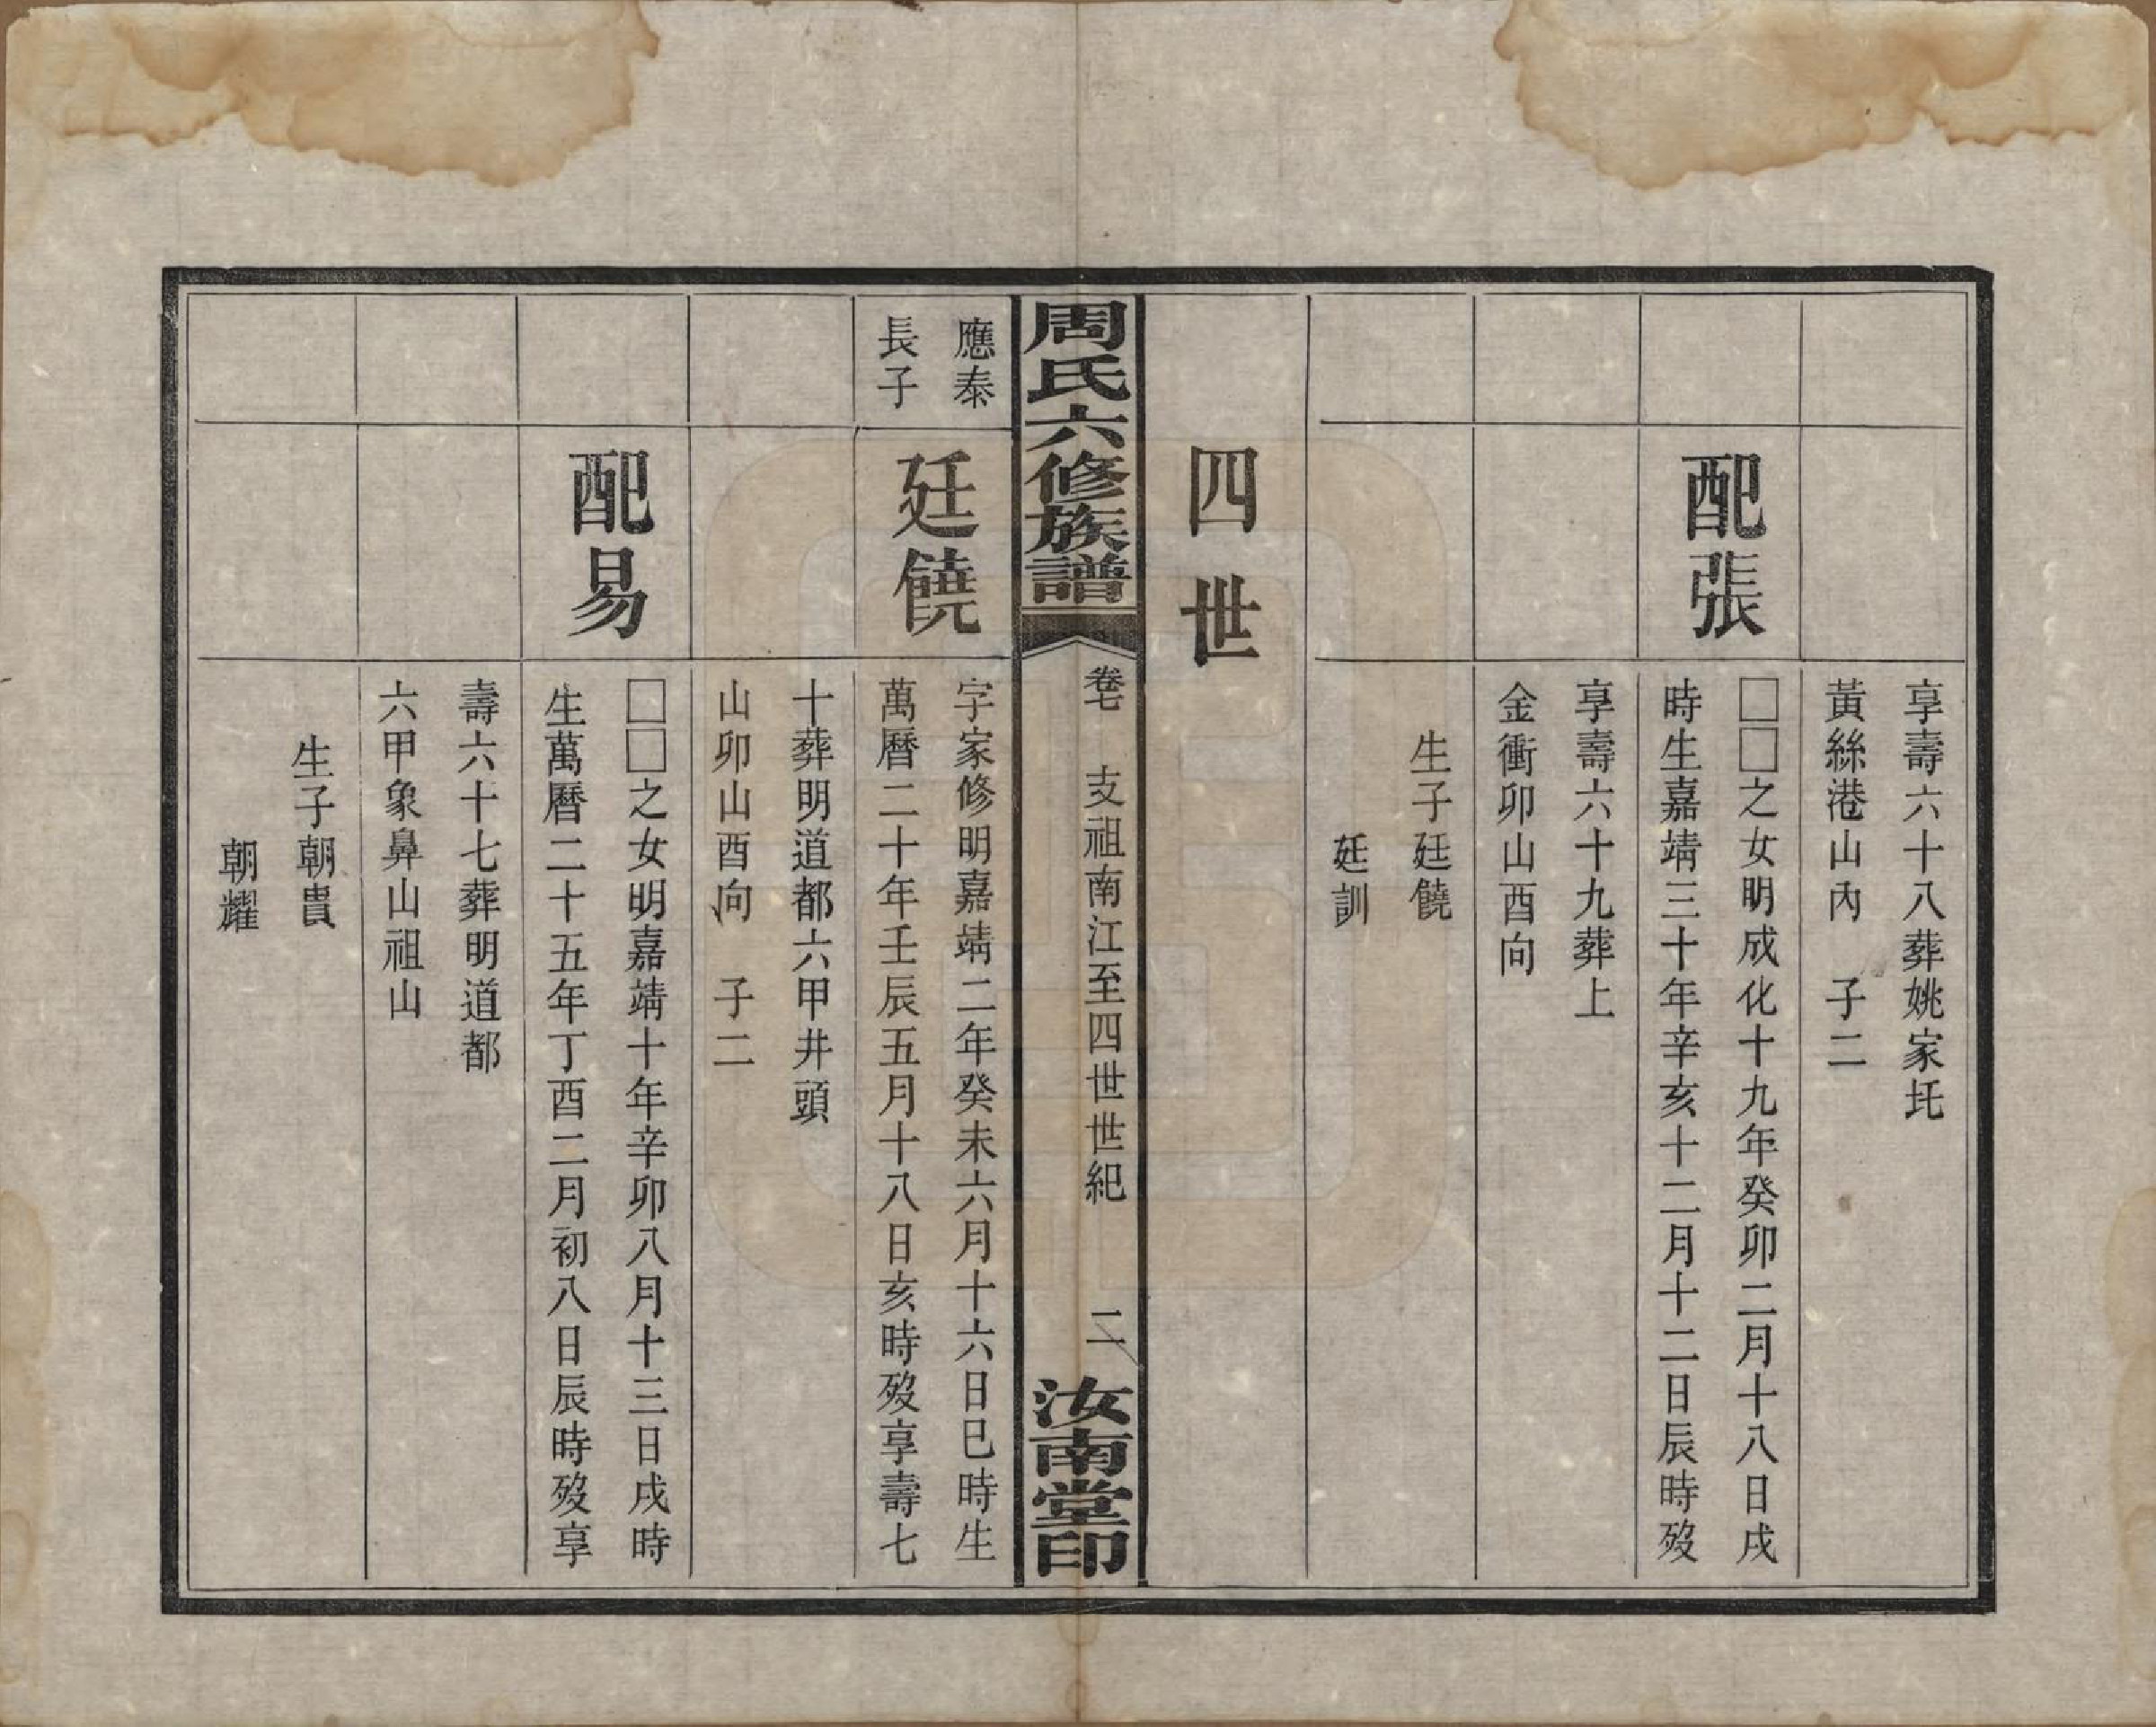 享壽六十八葬姚家圫
黃絲港山內　子二
配張
□□之女明成化十九年癸卯二月十八日戌
時生嘉靖三十年辛亥十二月十二日辰時歿
享壽六十九葬上
金衝卯山酉向
生子廷饒
廷訓
四世
周氏六修族譜
卷七　支祖南江至四世世紀　二
汝南堂印
應泰
長子
廷饒
字家修明嘉靖二年癸未六月十六日巳時生
萬曆二十年壬辰五月十八日亥時歿享壽七
十葬明道都六甲井頭
山卯山酉向　子二
配易
□□之女明嘉靖十年辛卯八月十三日戌時
生萬曆二十五年丁酉二月初八日辰時歿享
壽六十七葬明道都
六甲象鼻山祖山
生子朝貴
朝耀